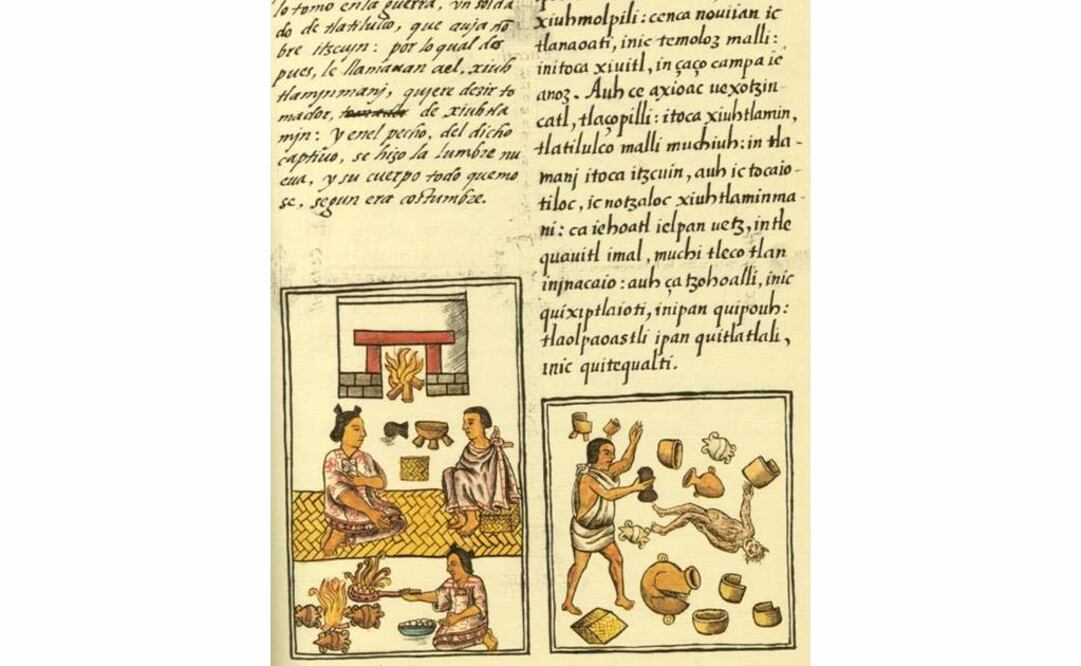 lo tomo en la guerra, vn solda
do de tlatilulco, que auja nō
bre itzcujn: por lo qual des
pues, le llamauan ael, xiuh
tlamjnmanj, qujere dezir to
mador, de xiuhtla
mjn: y enel pecho, del dicho
captiuo, se hizo la lumbre nu
eua, y su cuerpo todo quemo
se, segun era costumbre.
xiuhmolpili: cenca nouijan ic
tlanaoati, inic temoloz malli:
initoca xiuitl, in çaço campa ic
anoz. Auh ce axioac uexotzin-
catl, tlaçopilli: itoca xiuhtlamin,
tlatilulco malli muchiuh: in tla-
manj itoca itzcuin, auh ic tocaio-
tiloc, ic notzaloc xiuhtlaminma-
ni: ca iehoatl ielpan uetz, in tle
quauitl imal, muchi tleco tlan
injnacaio: auh ça tzohoalli, inic
quixiptlaioti, inipan quipouh:
tlaolpaoastli ipan quitlatlali,
inic quitequalti.